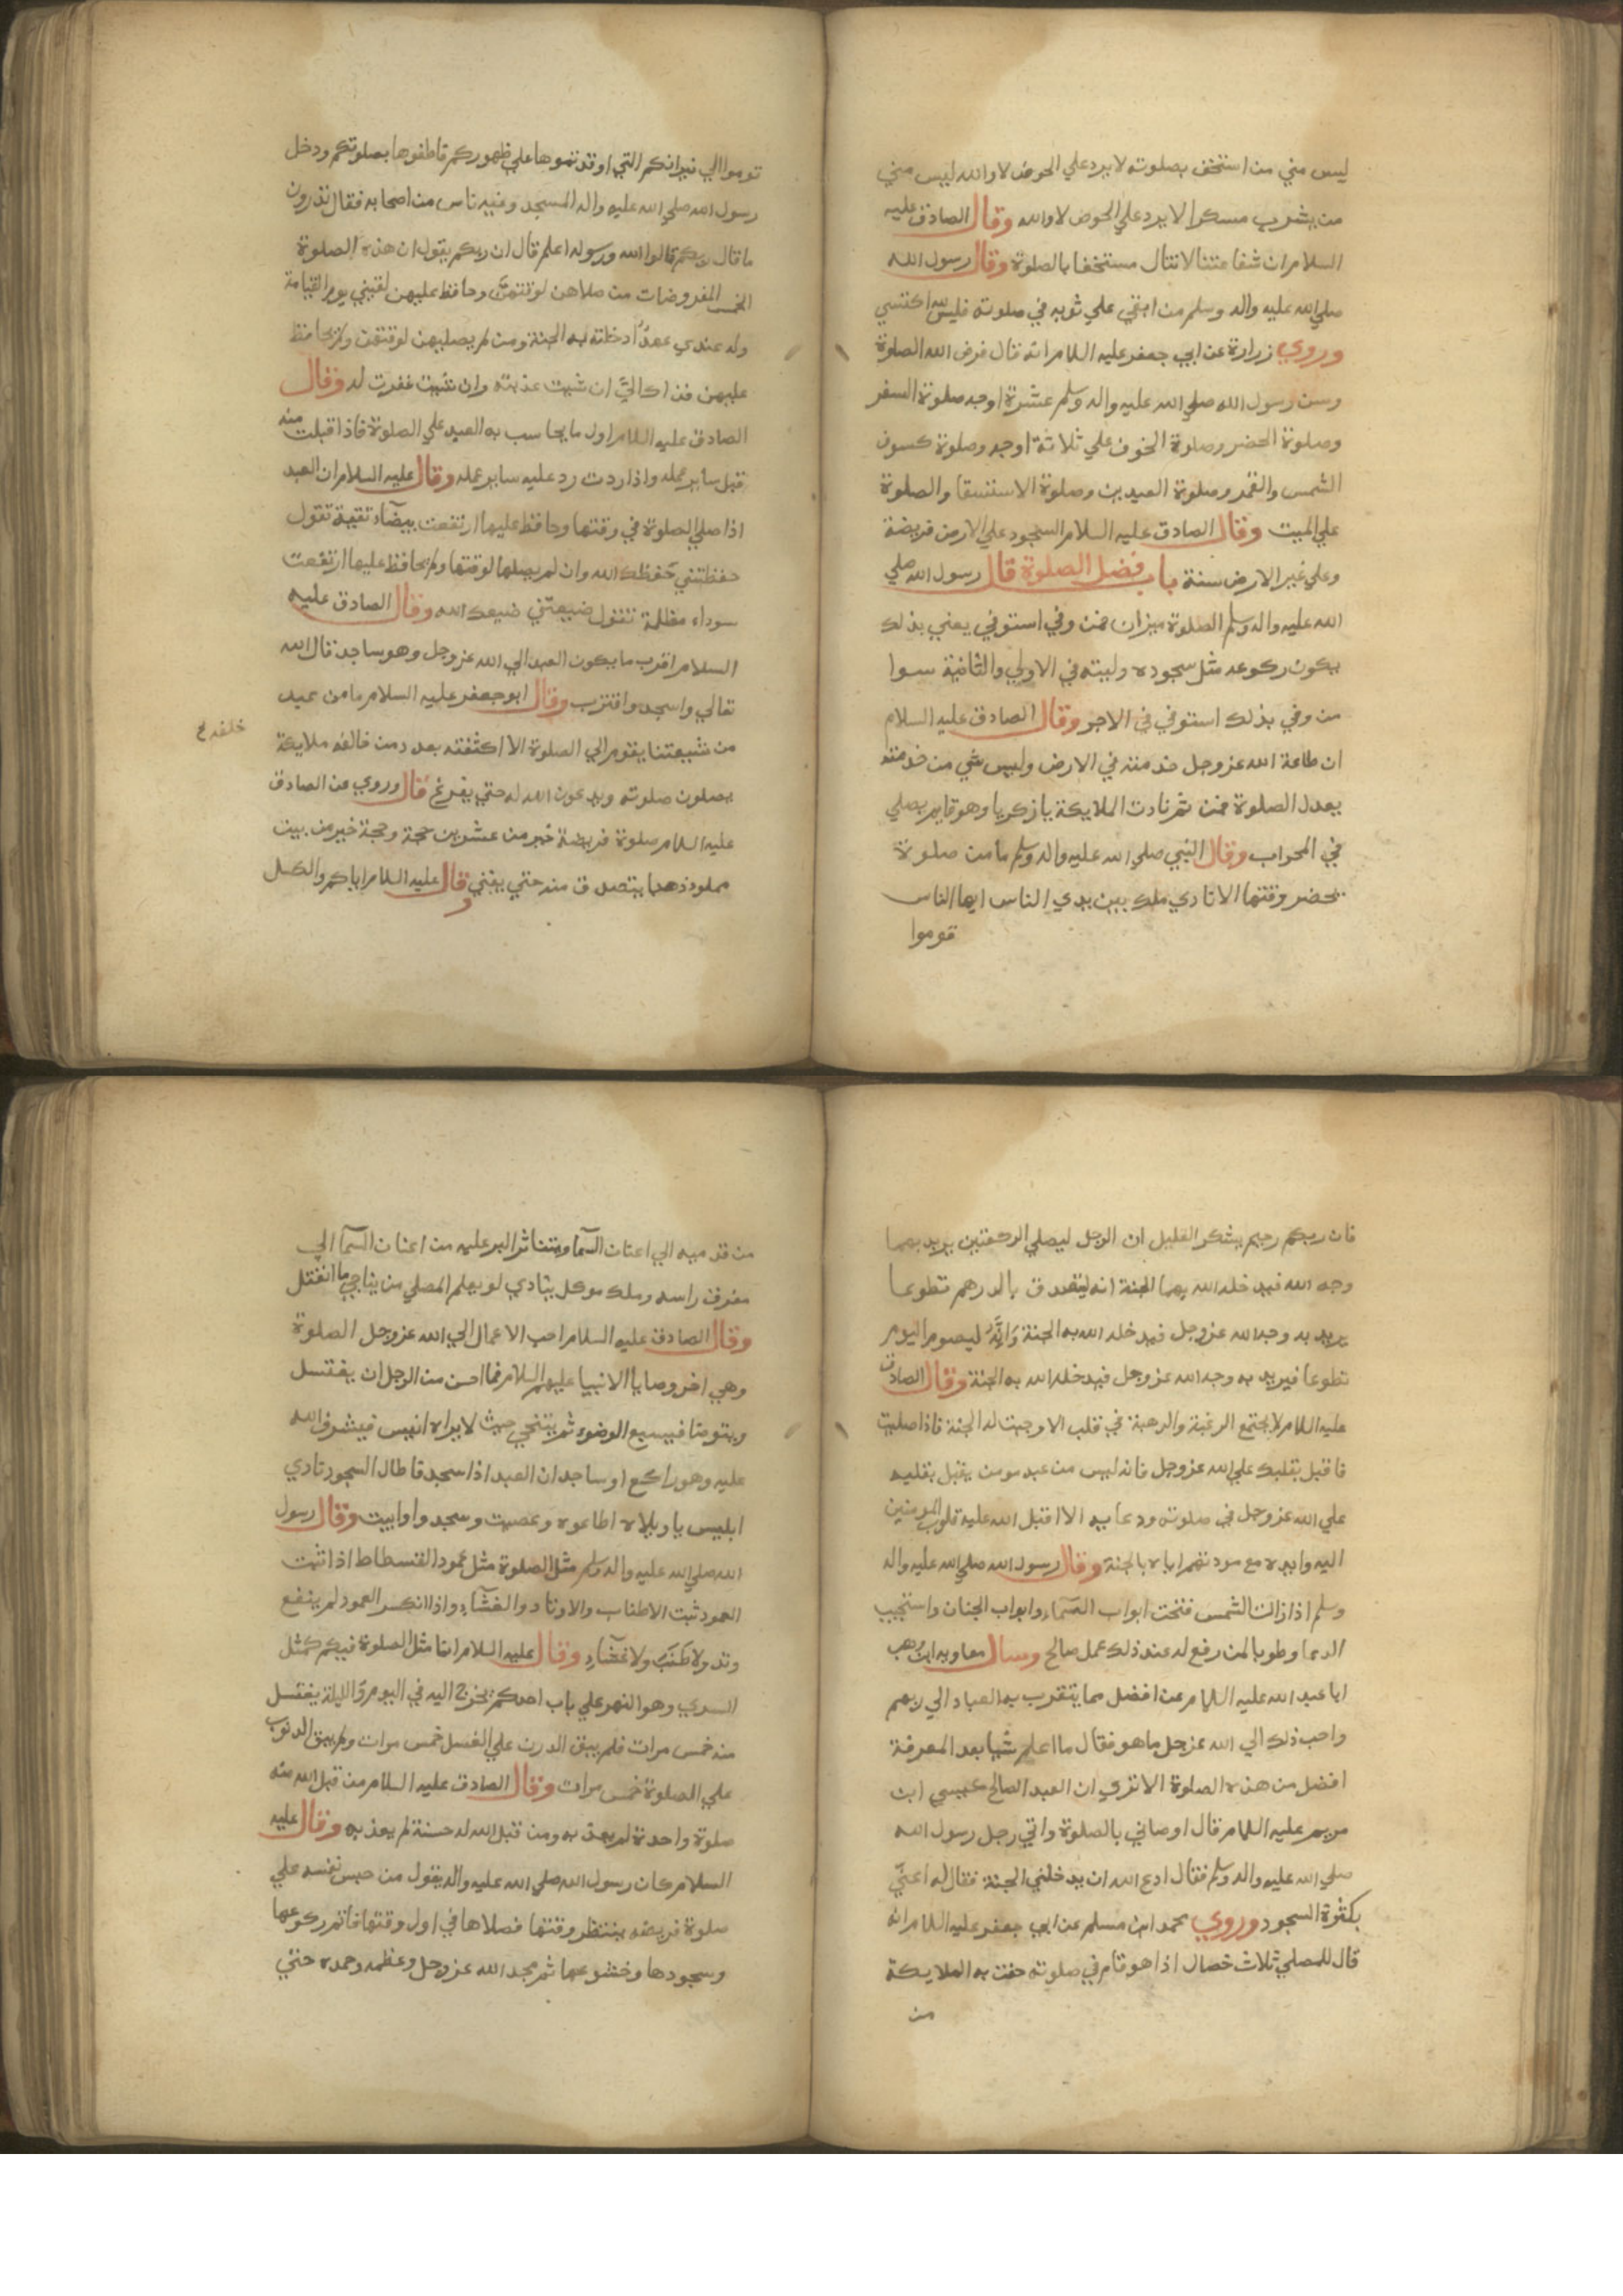 ليس مني من استخف بصلوته لا يرد علي الحوض لا والله ليس مني
من يشرب مسكرا لا يرد علي الحوض لا والله وقال الصادق عليه
السلام ان شفاعتنا لا تنال مستخفا بالصلوة وقال رسول الله
صلي الله عليه واله وسلم من اتقي علي ثوبه في صلوته فليس لله اكتسي
وروي زرارة عن ابي جعفر عليه السلام انه قال فرض الله الصلوة
وسن رسول الله صلي الله عليه واله وسلم عشرة اوجه صلوة السفر
وصلوة الحضر وصلوة الخوف علي ثلاثة اوجه وصلوة كسوف
الشمس والقمر وصلوة العيدين وصلوة الاستسقا والصلوة
علي الميت وقال الصادق عليه السلام السجود علي الارض فريضة
وعلي غير الارض سنة باب فضل الصلوة قال رسول الله صلي
الله عليه واله وسلم الصلوة ميزان فمن وفي استوفي يعني بذلك
يكون ركوعه مثل سجوده ولبثه في الاولي والثانية سوا
من وفي بذلك استوفي في الاجر وقال الصادق عليه السلام
ان طاعة الله عز وجل خدمته في الارض وليس شي من خدمته
يعدل الصلوة فمن ثم نادت الملايكة يا زكريا وهو قايم يصلي
في المحراب وقال النبي صلي الله عليه واله وسلم ما من صلوة
يحضر وقتها الا نادي ملك بين يدي الناس ايها الناس
قوموا
قوموا الي نيرانكم التي اوقدتموها علي ظهوركم فاطفوها بصلوتكم ودخل
رسول الله صلي الله عليه واله المسجد وفيه ناس من اصحابه فقال تدرون
ما قال ربكم قالوا الله ورسوله اعلم قال ان ربكم يقول ان هذه الصلوة
الخمس المفروضات من صلاهن لوقتهن وحافظ عليهن لقيني يوم القيامة
وله عندي عهدٌ ادخلته به الجنة ومن لم يصليهن لوقتهن ولم يحافظ
عليهن فذاك اليَّ ان شيت عذبته وان شيت غفرت له وقال
الصادق عليه السلام اول ما يحاسب به العبد علي الصلوة فاذا قبلت منه
قبل ساير عمله واذا ردت رد عليه ساير عمله وقال عليه السلام ان العبد
اذا صلي الصلوة في وقتها وحافظ عليها ارتفعت بيضآء نقية تقول
حفظتني حفظك الله وان لم يصلها لوقتها ولم يحافظ عليها ارتفعت
سوداء مظلمة تقول ضيعتني ضيعك الله وقال الصادق عليه
السلام اقرب ما يكون العبد الي الله عز وجل وهو ساجد قال الله
تعالي واسجد واقترب وقال ابو جعفر عليه السلام ما من عبد
خلفه
من شيعتنا يقوم الي الصلوة الا اكتنفته بعدد من خالفه ملايكة
يصلون صلوته ويدعون الله له حتي يفرغ قال وروي عن الصادق
عليه السلام صلوة فريضة خير من عشرين حجة وحجة خير من بيت
مملو ذهبا يتصدق منه حتي يفني وقال عليه السلام اياكم والكسل
فان ربكم رحيم يشكر القليل ان الرجل ليصلي الركعتين يريد بهما
وجه الله فيدخله الله بهما الجنة انه ليتصدق بالدرهم تطوعا
يريد به وجه الله عز وجل فيدخله الله به الجنة وَانَّهُ ليصوم اليوم
تطوعا فيريد به وجه الله عز وجل فيدخله الله به الجنة وقال الصادق
عليه السلام لا يجتمع الرغبة والرهبة في قلب الا وجبت له الجنة فاذا صليت
فاقبل بقلبك علي الله عز وجل فانه ليس من عبد مومن يقبل بقلبه
علي الله عز وجل في صلوته ودعايه الا اقبل الله عليه قلوب المومنين
اليه وايده مع مودتهم اياه بالجنة وقال رسول الله صلي الله عليه واله
وسلم اذا زالت الشمس فتحت ابواب السمآء وابواب الجنان واستجيب
الدعا وطوبا لمن رفع له عند ذلك عمل صالح وسال معاويه ابن وهب
ابا عبد الله عليه السلام عن افضل مما يتقرب به العباد الي ربهم
واحب ذلك الي الله عز جل ما هو فقال ما اعلم شيا بعد المعرفة
افضل من هذه الصلوة الا تري ان العبد الصالح عيسي ابن
مريم عليه السلام قال اوصاني بالصلوة واتي رجل رسول الله
صلي الله عليه واله وسلم فقال ادع الله ان يدخلني الجنة فقال له اعنّي
بكثرة السجود وروي محمد ابن مسلم عن ابي جعفر عليه السلام انه
قال للمصلي ثلاث خصال اذا هو قام في صلوته حفت به الملايكة
من
من قدميه الي اعنان السمآ ويتناثر البر عليه من اعنان السمآ الي
مفرق راسه وملك موكل ينادي لو يعلم المصلي من يناجي ما انفتل
وقال الصادق عليه السلام احب الاعمال الي الله عز وجل الصلوة
وهي اخر وصايا الانبيا عليهم السلام فما احسن من الرجل ان يغتسل
ويتوضا فيسبغ الوضوء ثم يتنحي حيث لا يراه انيس فيشرف الله
عليه وهو راكع او ساجد ان العبد اذا سجد فاطال السجود نادي
ابليس يا ويلاه اطاعوه وعصيت وسجدوا وابيت وقال رسول
الله صلي الله عليه واله وسلم مثل الصلوة مثل عمود الفسطاط اذا ثبت
العمود ثبت الاطناب والاوتاد والغشآء واذا انكسر العمود لم ينفع
وتد ولا طَنَبٌ ولا غشآء وقال عليه السلام انما مثل الصلوة فيكم كمثل
السري وهو النهر علي باب احدكم يخرج اليه في اليوم والليلة يغتسل
منه خمس مرات فلم يبق الدرن علي الغسل خمس مرات ولم يبق الذنوب
علي الصلوة خمس مرات وقال الصادق عليه السلام من قبل الله منه
صلوة واحدة لم يعذبه ومن قبل الله له حسنة لم يعذبه وقال عليه
السلام كان رسول الله صلي الله عليه واله يقول من حبس نفسه علي
صلوة فريضه ينتظر وقتها فصلاها في اول وقتها فاتم ركوعها
وسجودها وخشوعها ثم مجد الله عز وجل وعظمه وحمده حتي